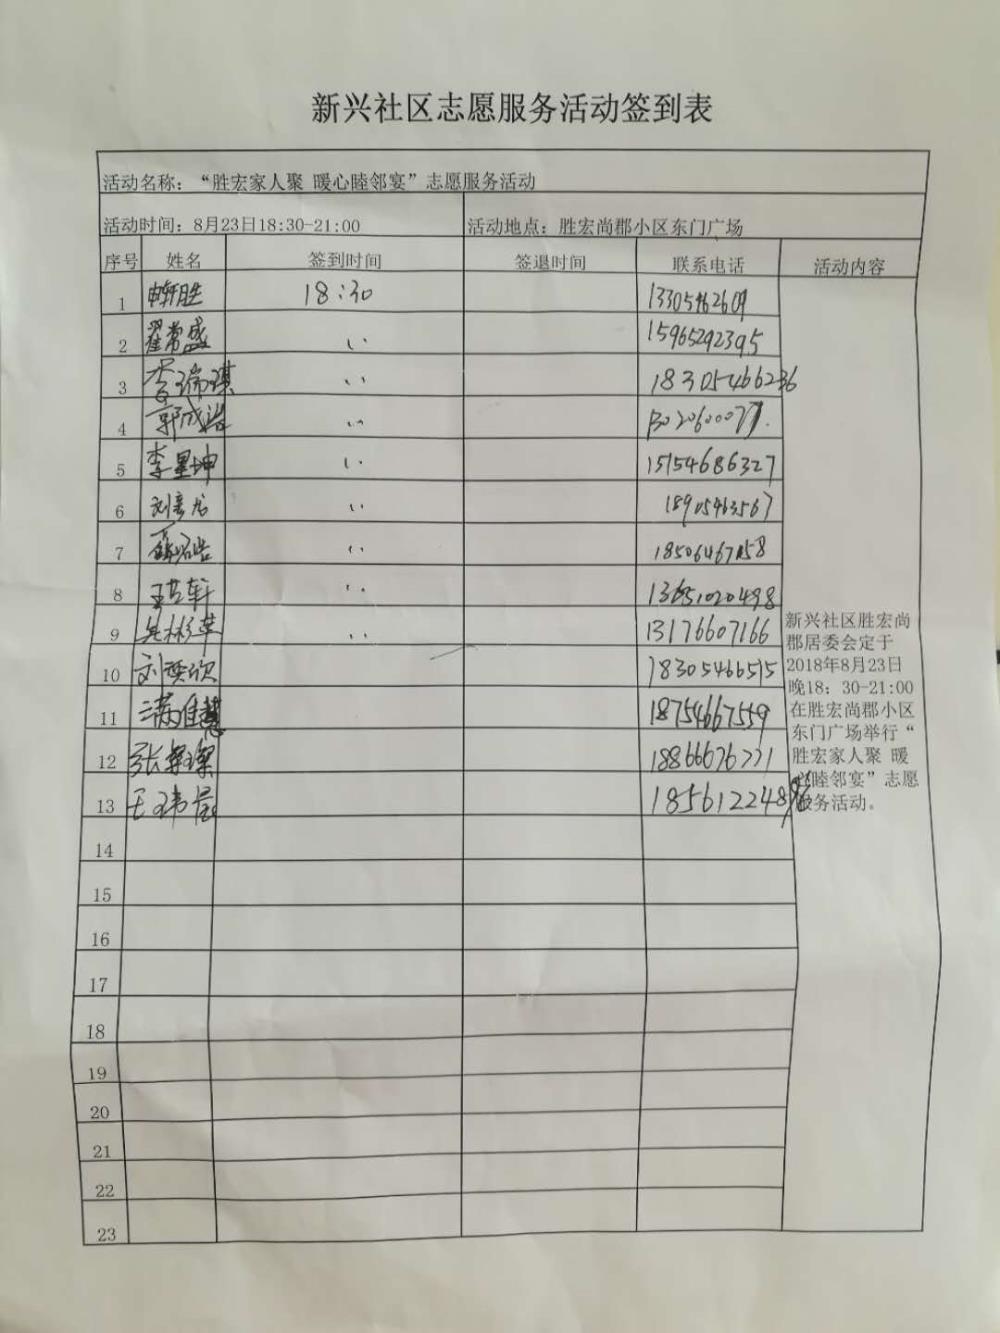 新兴社区志愿服务活动签到表
活动名称：“胜宏家人聚 暖心睦邻宴”志愿服务活动
活动时间：8月23日18:30-21:00 活动地点：胜宏尚郡小区东门广场
序号 姓名 签到时间 签退时间 联系电话 活动内容
1 18:30 13305462609
2 翟常盛 〃 15965292395
3 李瑞琪 〃 18305466236
4 郭成浩 〃
5 李星坤 〃 15154686327
6 刘彦龙 〃 18905463567
7 〃
8 〃
9 〃 13176607166
10 18305466515
11 满佳慧 18754667559
12 18866676771
13 王玮晨
14
15
16
17
18
19
20
21
22
23
新兴社区胜宏尚
郡居委会定于
2018年8月23日
晚18：30-21:00
在胜宏尚郡小区
东门广场举行“
胜宏家人聚 暖
心睦邻宴”志愿
服务活动。